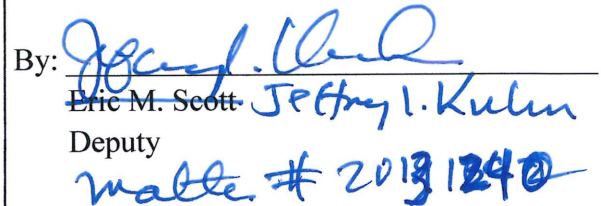 By:
Eric M. Scott Jeffrey I. Kuhn
Deputy
Matter # 2013